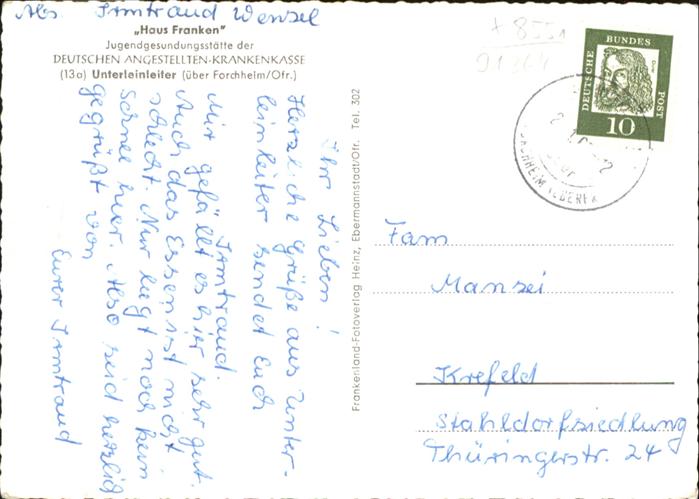 Abs. Irmtraud Wensel
„Haus Franken"
Jugendgesundungsstätte der
DEUTSCHEN ANGESTELLTEN-KRANKENKASSE
(13a) Unterleinleiter (über Forchheim/Ofr.)
Ihr Lieben!
Herzliche Grüße aus Unter-
leinleiter sendet Euch
Irmtraud.
Mir gefällt es hier sehr gut.
Auch das Essen ist nicht
schlecht. Nur liegt noch kein
Schnee hier. Also seid herzlich
gegrüßt von
Eurer Irmtraud
Frankenland-Fotoverlag Heinz, Ebermannstadt/Ofr. Tel. 302
+ 8551
91364
DEUTSCHE BUNDES POST
10
FORCHHEIM (OBERFR
Fam
Mansei
Krefeld
Stahldorfsiedlung
Thüringerstr. 24